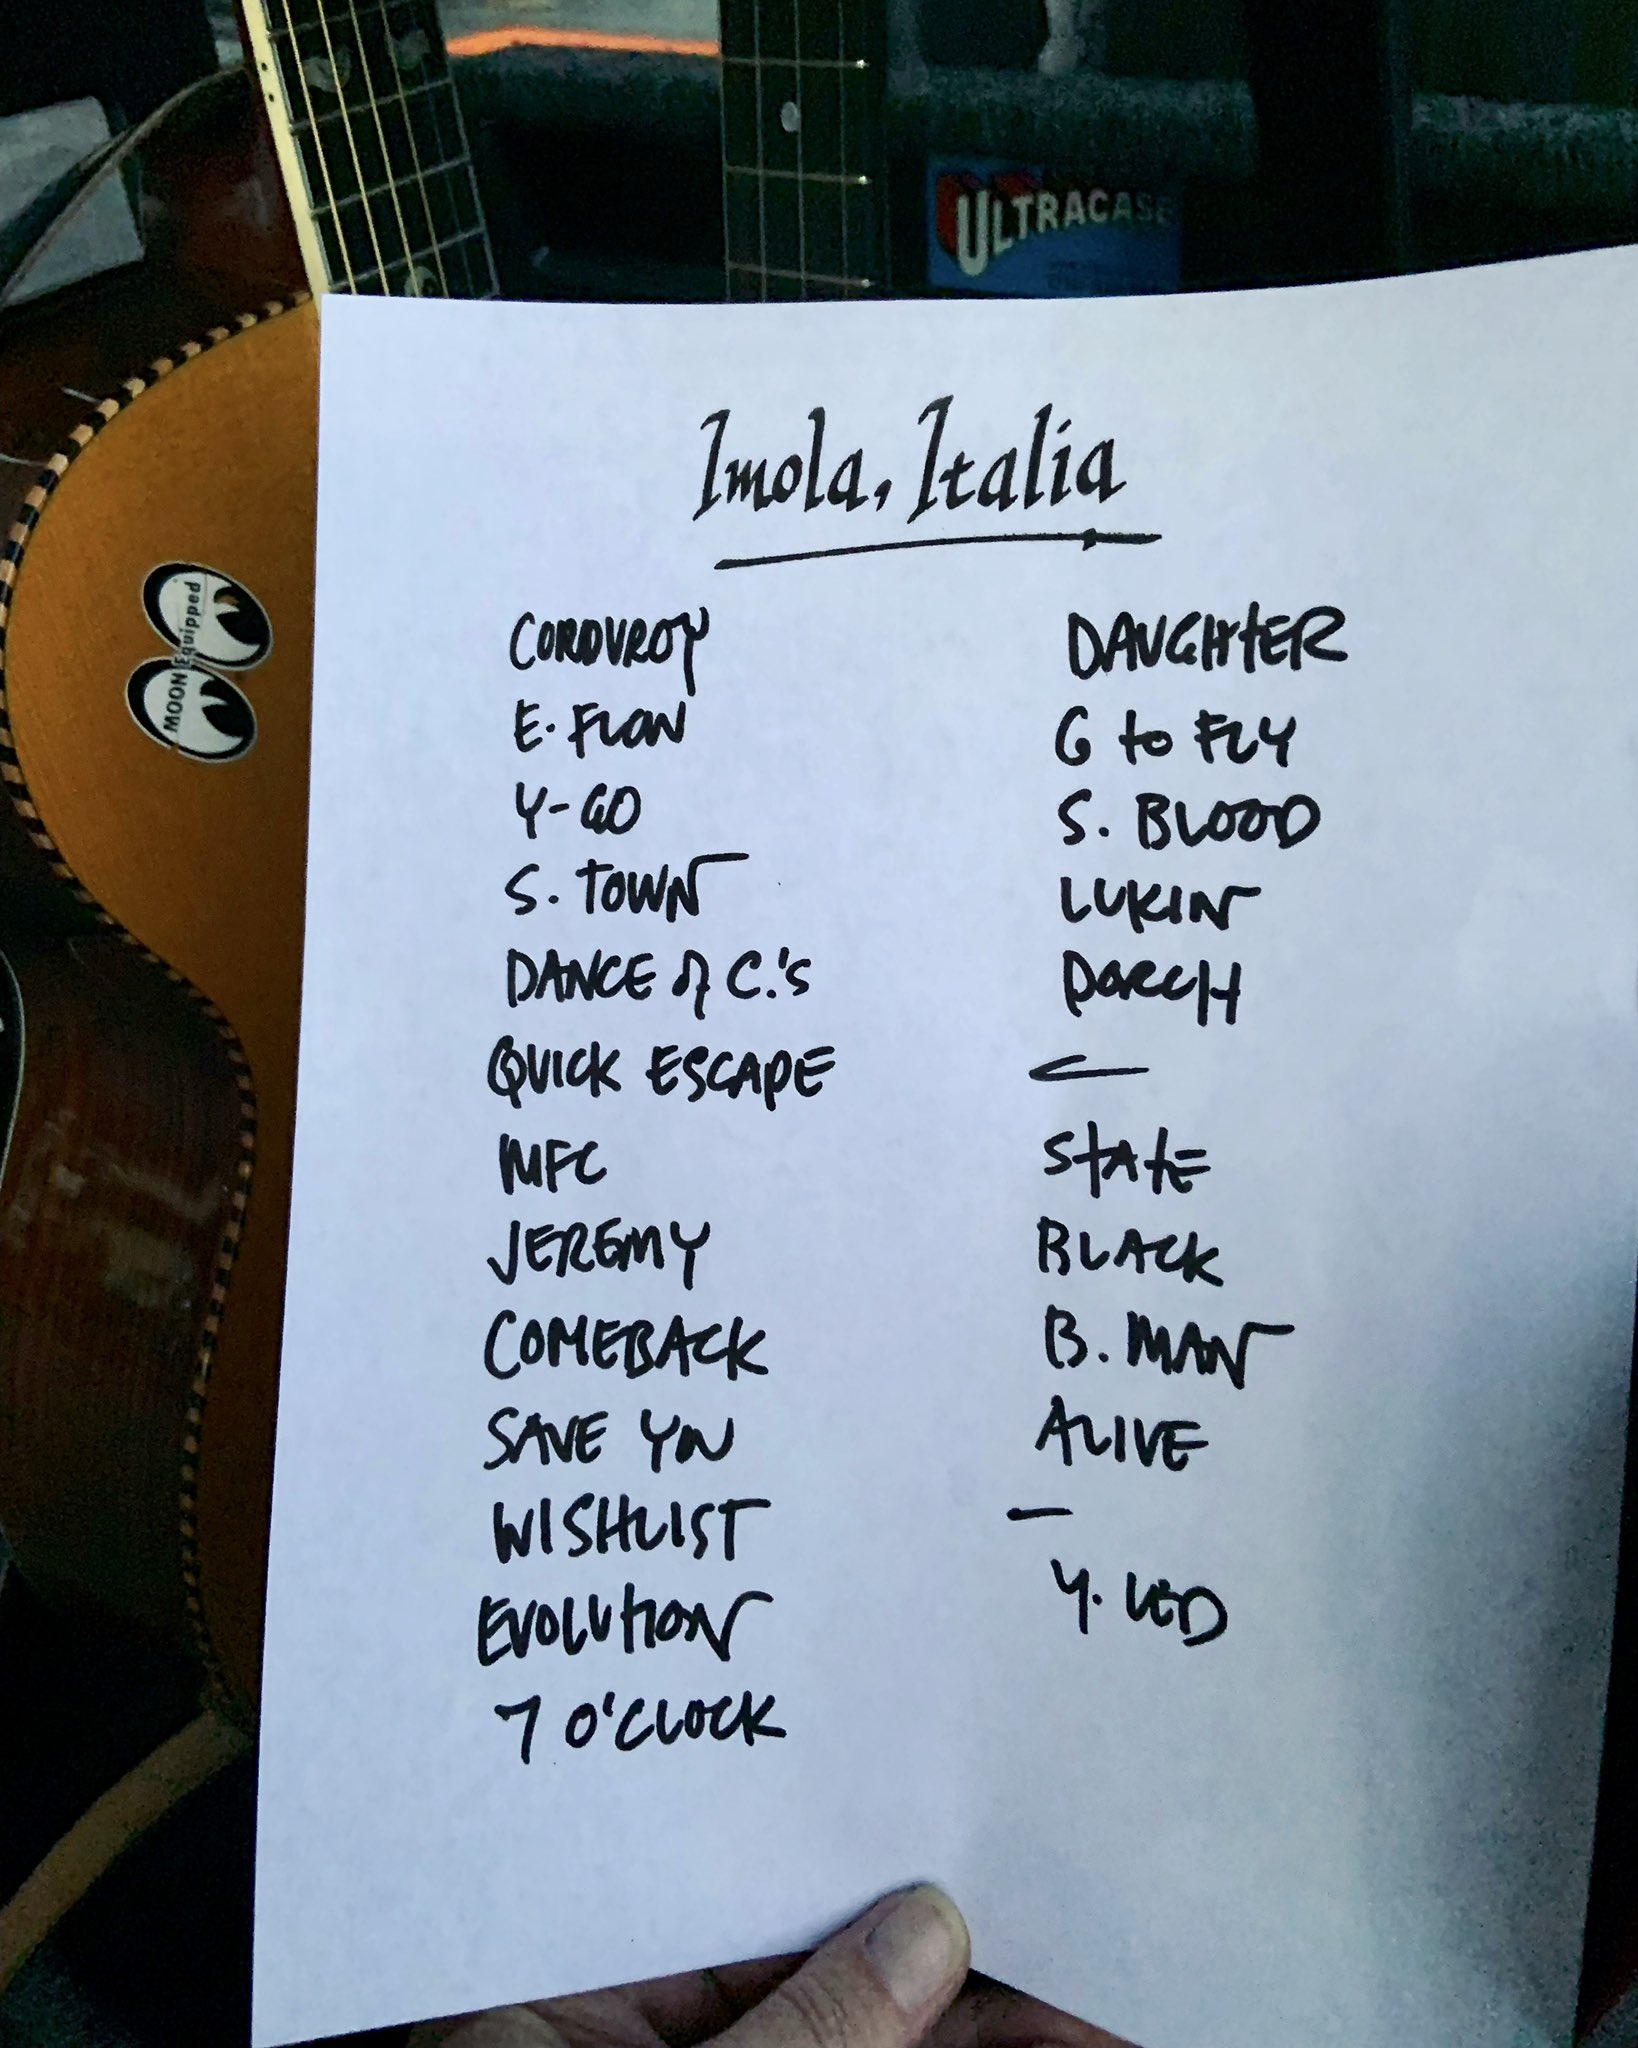 ULTRACASE
MOON Equipped
Imola, Italia
CORDUROY
E. FLOW
Y-GO
S. TOWN
DANCE of C.'s
QUICK ESCAPE
MFC
JEREMY
COMEBACK
SAVE YOU
WISHLIST
EVOLUTION
7 O'CLOCK
DAUGHTER
G to FLY
S. BLOOD
LUKIN
PORCH
STATE
BLACK
B. MAN
ALIVE
—
Y. LED